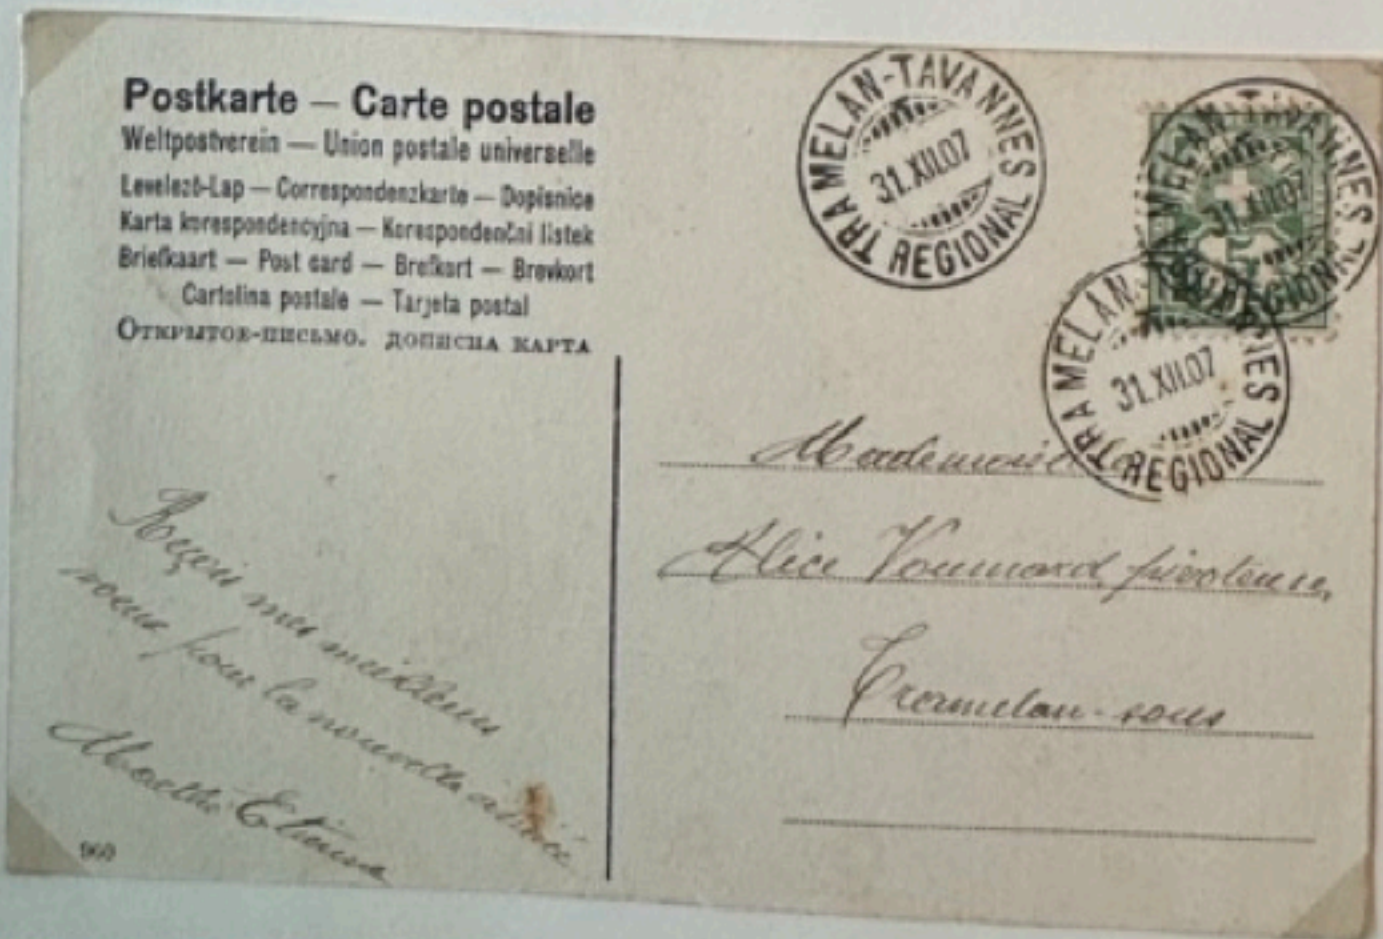 Postkarte — Carte postale
Weltpostverein — Union postale universelle
Levelező-Lap — Correspondenzkarte — Dopisnice
Karta korespondencyjna — Korespondenční listek
Briefkaart — Post card — Brefkort — Brevkort
Cartolina postale — Tarjeta postal
Открытое-письмо. дописна карта
TRAMELAN-TAVANNES
31.XII.07
REGIONAL
TRAMELAN-TAVANNES
31.XII.07
REGIONAL
TRAMELAN-TAVANNES
31.XII.07
REGIONAL
Mademoiselle
Alice Vuumard pivoteuse,
Tramelan-sous
Reçois mes meilleurs
voeux pour la nouvelle année
Marthe Etienne
960